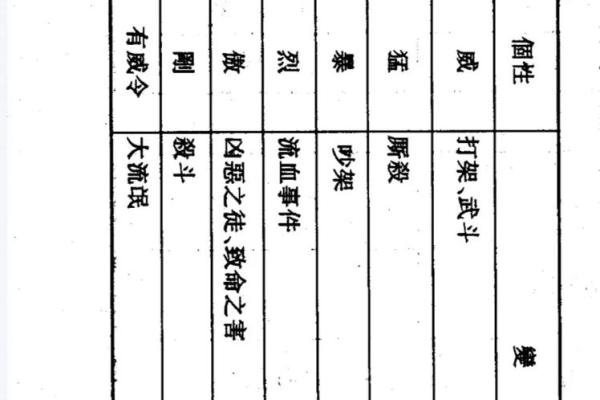 個性 變
威 打架、武斗
猛 厮殺
暴 吵架
烈 流血事件
傲 凶惡之徒、致命之害
剛 殺斗
有威令 大流氓